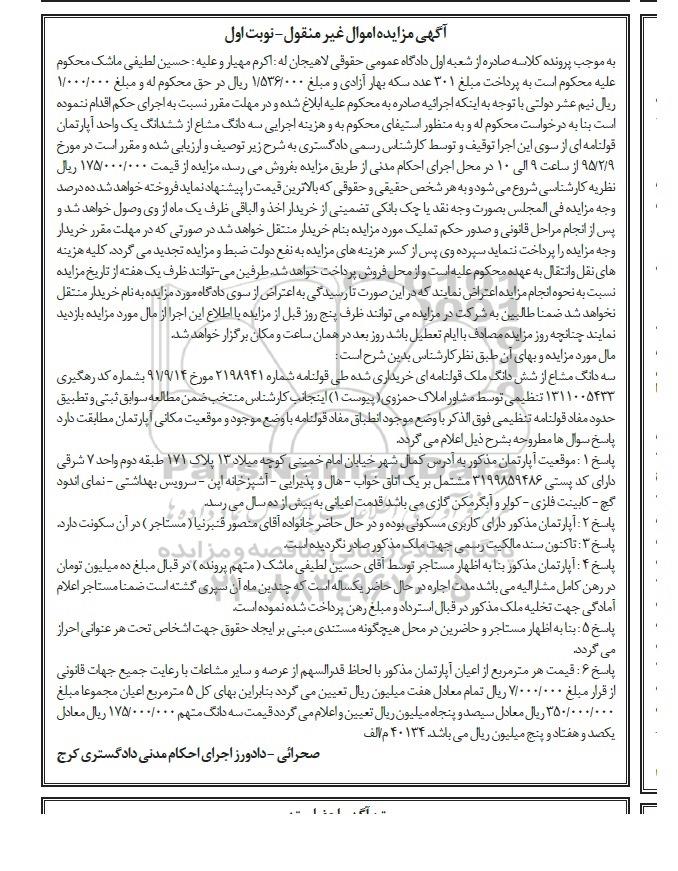 آگهی مزایده اموال غیر منقول-نوبت اول
به موجب پرونده کلاسه صادره از شعبه اول دادگاه عمومی حقوقی لاهیجان له : اکرم مهیار و علیه : حسین لطیفی ماشک محکوم
علیه محکوم است به پرداخت مبلغ ۳۰۱ عدد سکه بهار آزادی و مبلغ ۱/۵۳۶/۰۰۰ ریال در حق محکوم له و مبلغ ۱/۰۰۰/۰۰۰
ریال نیم عشر دولتی با توجه به اینکه اجرائیه صادره به محکوم علیه ابلاغ شده و در مهلت مقرر نسبت به اجرای حکم اقدام ننموده
است بنا به درخواست محکوم له و به منظور استیفای محکوم به و هزینه اجرایی سه دانگ مشاع از ششدانگ یک واحد آپارتمان
قولنامه ای از سوی این اجرا توقیف و توسط کارشناس رسمی دادگستری به شرح زیر توصیف و ارزیابی شده و مقرر است در مورخ
۹۵/۲/۹ از ساعت ۹ الی ۱۰ در محل اجرای احکام مدنی از طریق مزایده بفروش می رسد، مزایده از قیمت ۱۷۵/۰۰۰/۰۰۰ ریال
نظریه کارشناسی شروع می شود و به هر شخص حقیقی و حقوقی که بالاترین قیمت را پیشنهاد نماید فروخته خواهد شد ده درصد
وجه مزایده فی المجلس بصورت وجه نقد یا چک بانکی تضمینی از خریدار اخذ و الباقی ظرف یک ماه از وی وصول خواهد شد و
پس از انجام مراحل قانونی و صدور حکم تملیک مورد مزایده بنام خریدار منتقل خواهد شد در صورتی که در مهلت مقرر خریدار
وجه مزایده را پرداخت ننماید سپرده وی پس از کسر هزینه های مزایده به نفع دولت ضبط و مزایده تجدید می گردد. کلیه هزینه
های نقل وانتقال به عهده محکوم علیه است و از محل فروش پرداخت خواهد شد. طرفین می-توانند ظرف یک هفته از تاریخ مزایده
نسبت به نحوه انجام مزایده اعتراض نمایند که در این صورت تا رسیدگی به اعتراض از سوی دادگاه مورد مزایده به نام خریدار منتقل
نخواهد شد ضمنا طالبین به شرکت در مزایده می توانند ظرف پنج روز قبل از مزایده با اطلاع این اجرا از مال مورد مزایده بازدید
نمایند چنانچه روز مزایده مصادف با ایام تعطیل باشد روز بعد در همان ساعت و مکان برگزار خواهد شد.
مال مورد مزایده و بهای آن طبق نظر کارشناس بدین شرح است :
سه دانگ مشاع از شش دانگ ملک قولنامه ای خریداری شده طی قولنامه شماره ۲۱۹۸۹۴۱ مورخ ۹۱/۹/۱۴ بشماره کد رهگیری
۱۳۱۱۰۰۵۴۳۳ تنظیمی توسط مشاور املاک حمزوی( پیوست ۱) اینجانب کارشناس منتخب ضمن مطالعه سوابق ثبتی و تطبیق
حدود مفاد قولنامه تنظیمی فوق الذکر با وضع موجود انطباق مفاد قولنامه با وضع موجود و موقعیت مکانی آپارتمان مطابقت دارد
پاسخ سوال ها مطروحه بشرح ذیل اعلام می گردد.
پاسخ ۱ : موقعیت آپارتمان مذکور به آدرس کمال شهر خیابان امام خمینی کوچه میلاد ۱۳ پلاک ۱۷۱ طبقه دوم واحد ۷ شرقی
دارای کد پستی ۳۱۹۹۸۵۹۴۸۶ مشتمل بر یک اتاق خواب - هال و پذیرایی - آشپزخانه اپن - سرویس بهداشتی - نمای اندود
گچ - کابینت فلزی - کولر و آبگرمکن گازی می باشد قدمت اعیانی به بیش از ده سال می رسد.
پاسخ ۲ : آپارتمان مذکور دارای کاربری مسکونی بوده و در حال حاضر خانواده آقای منصور قنبرنیا ( مستاجر ) در آن سکونت دارد.
پاسخ ۳ : تاکنون سند مالکیت رسمی جهت ملک مذکور صادر نگردیده است.
پاسخ ۴ : آپارتمان مذکور بنا به اظهار مستاجر توسط آقای حسین لطیفی ماشک ( متهم پرونده ) در قبال مبلغ ده میلیون تومان
در رهن کامل مشارالیه می باشد مدت اجاره در حال حاضر یکساله است که چندین ماه آن سپری گشته است ضمنا مستاجر اعلام
آمادگی جهت تخلیه ملک مذکور در قبال استرداد و مبلغ رهن پرداخت شده نموده است.
پاسخ ۵ : بنا به اظهار مستاجر و حاضرین در محل هیچگونه مستندی مبنی بر ایجاد حقوق جهت اشخاص تحت هر عنوانی احراز
می گردد.
پاسخ ۶ : قیمت هر مترمربع از اعیان آپارتمان مذکور با لحاظ قدرالسهم از عرصه و سایر مشاعات با رعایت جمیع جهات قانونی
از قرار مبلغ ۷/۰۰۰/۰۰۰ ریال تمام معادل هفت میلیون ریال تعیین می گردد بنابراین بهای کل ۵ مترمربع اعیان مجموعا مبلغ
۳۵۰/۰۰۰/۰۰۰ ریال معادل سیصد و پنجاه میلیون ریال تعیین و اعلام می گردد قیمت سه دانگ متهم ۱۷۵/۰۰۰/۰۰۰ ریال معادل
یکصد و هفتاد و پنج میلیون ریال می باشد. ۴۰۱۳۴ م/الف
صحرائی - دادورز اجرای احکام مدنی دادگستری کرج
ParsNamadData
پایگاه اطلاع رسانی مناقصه و مزایده